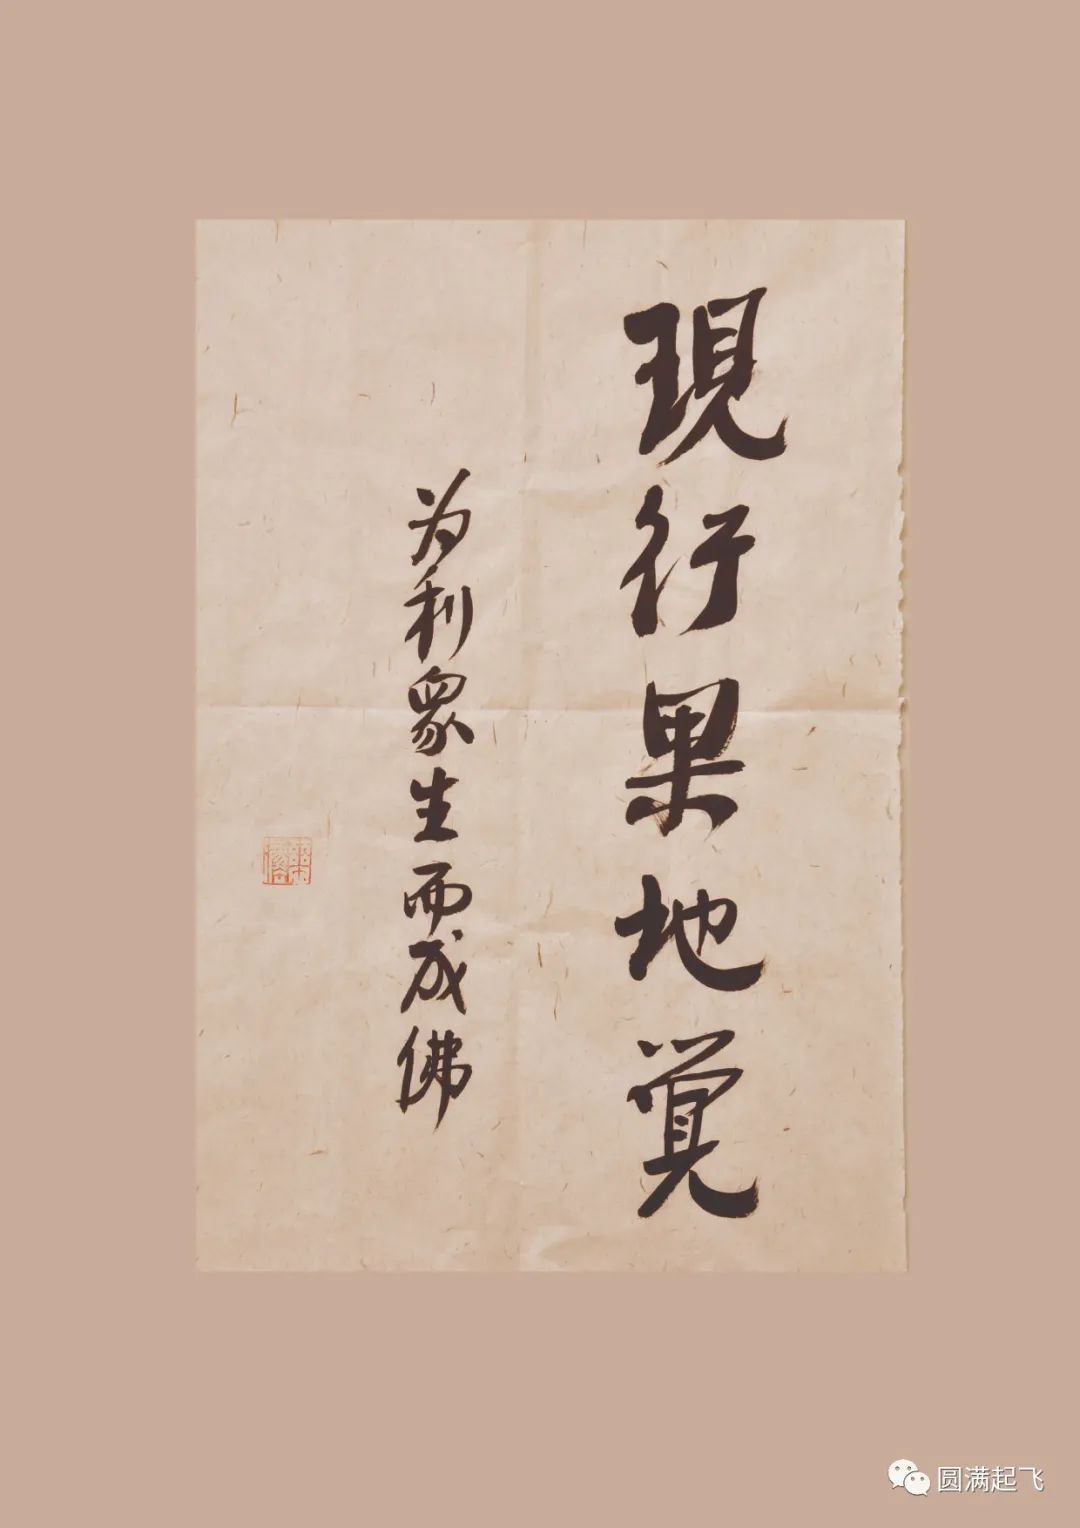 現行果地覚
为利眾生而成佛
圆满起飞